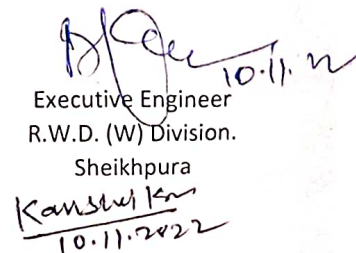 10.11.22
Executive Engineer
R.W.D. (W) Division.
Sheikhpura
10.11.2022